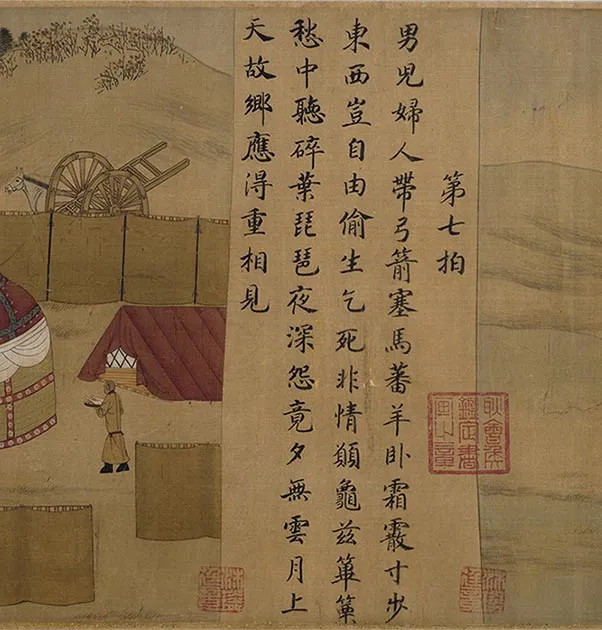 第七拍
男兒婦人帶弓箭塞馬蕃羊卧霜霰寸步
東西豈自由偷生乞死非情願龜茲篳篥
愁中聽碎葉琵琶夜深怨竟夕無雲月上
天故鄉應得重相見
耿會侯
鑑定書
畫之章